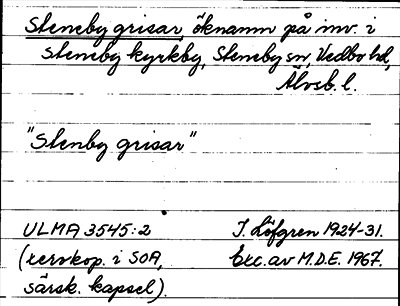 Steneby grisar, öknamn på inv. i
Steneby kyrkby, Steneby sn, Vedbo hd,
Älvsb. l.
"Stenby grisar"
ULMA 3545:2 I. Löfgren 1924-31.
(xerokop. i SOA, Exc. av M.D.E. 1967.
särsk. kapsel).